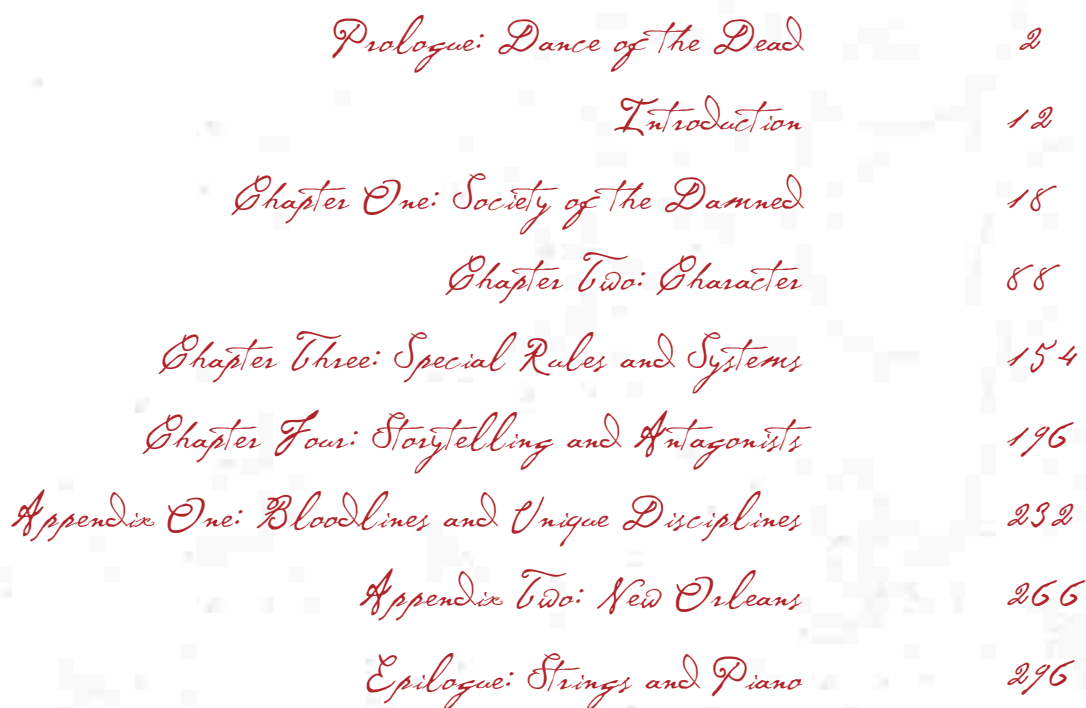 Prologue: Dance of the Dead 2
Introduction 12
Chapter One: Society of the Damned 18
Chapter Two: Character 88
Chapter Three: Special Rules and Systems 154
Chapter Four: Storytelling and Antagonists 196
Appendix One: Bloodlines and Unique Disciplines 232
Appendix Two: New Orleans 266
Epilogue: Strings and Piano 296